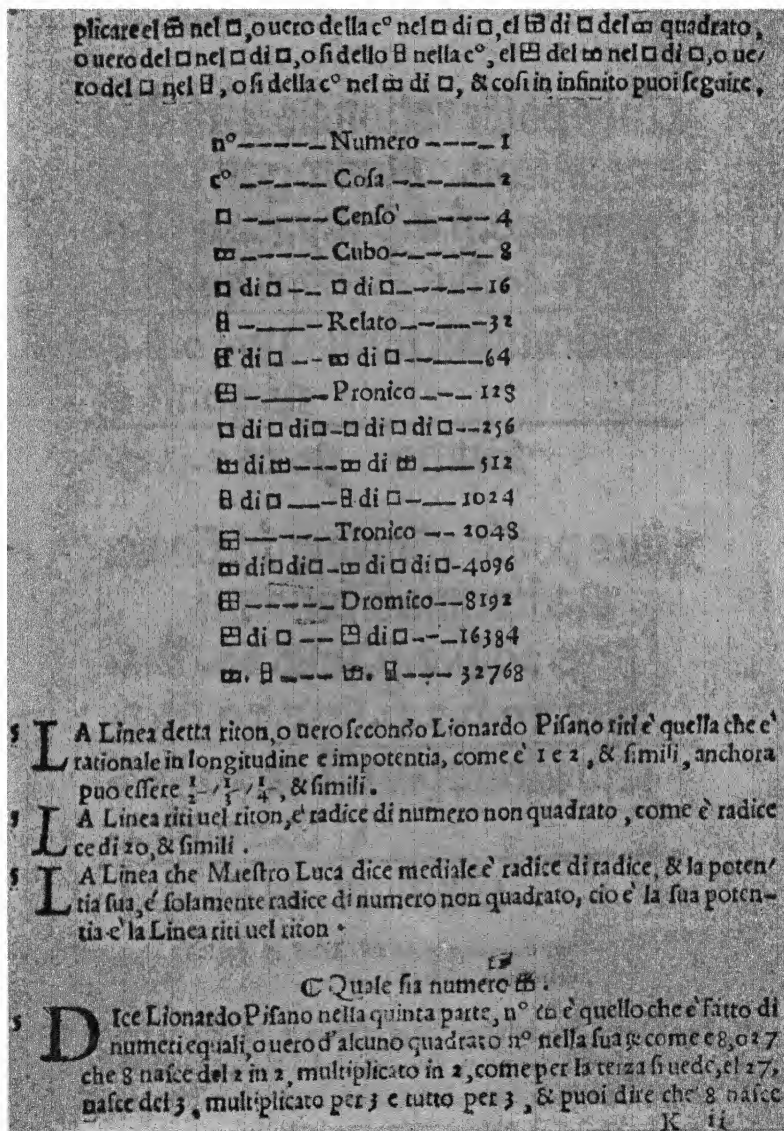 plicare el ▭▭ nel □, o uero della c° nel □ di □, el ▭▭ di □ del ▭▭ quadrato,
o uero del □ nel □ di □, o ſi dello 日 nella c°, el 田 del ▭▭ nel □ di □, o ue/
ro del □ nel 日, o ſi della c° nel ▭▭ di □, & coſi in infinito puoi ſeguire.
n° ------ Numero ----- 1
c° ------ Coſa ------ 2
□ ------ Cenſo ------ 4
▭▭ ------ Cubo ------- 8
□ di □ --- □ di □ ------ 16
日 ------ Relato ------ 32
▭▭ di □ --- ▭▭ di □ ------ 64
田 ------ Pronico ---- 128
□ di □ di □ - □ di □ di □ -- 256
▭▭ di ▭▭ --- ▭▭ di ▭▭ ---- 512
日 di □ ---- 日 di □ ---- 1024
田 ------ Tronico -- 2048
▭▭ di □ di □ - ▭▭ di □ di □ - 4096
田 ------ Dromico -- 8192
田 di □ --- 田 di □ --- 16384
▭▭. 日 ---- ▭▭. 日 ---- 32768
¶ LA Linea detta riton, o uero ſecondo Lionardo Piſano riti è quella che è
rationale in longitudine e impotentia, come è 1 e 2, & ſimili, anchora
puo eſſere 1/2 / 1/3 / 1/4, & ſimili.
¶ LA Linea riti uel riton, è radice di numero non quadrato, come è radice
ce di 20, & ſimili.
¶ LA Linea che Maeſtro Luca dice mediale è radice di radice, & la poten/
tia ſua, è ſolamente radice di numero non quadrato, cio è la ſua poten-
tia è la Linea riti uel riton.
☾ Quale ſia numero ▭▭.
¶ DIce Lionardo Piſano nella quinta parte, n° ▭▭ è quello che è fatto di
numeri equali, o uero d'alcuno quadrato n° nella ſua ℞ come è 8, o 27
che 8 naſce del 2 in 2, multiplicato in 2, come per la terza ſi uede, el 27,
naſce del 3, multiplicato per 3 e tutto per 3, & puoi dire che 8 naſce
K ii